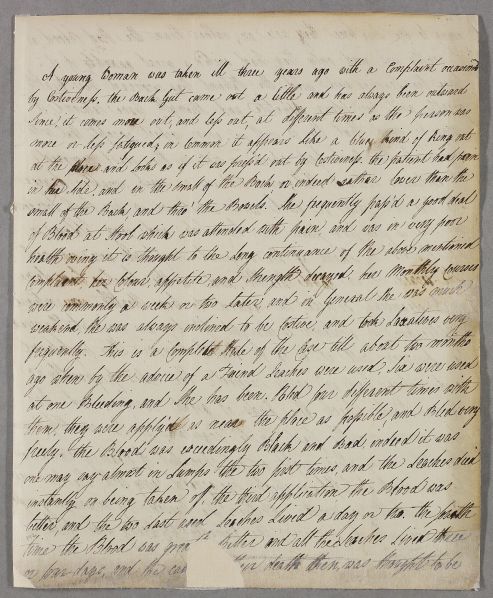 A young Woman was taken ill three years ago with a Complaint occasiond
by Costiveness, the Back Gut came out a little and has always been relaxed
since, it comes more out, and less out, at different times as the person was
more or less fatigued, in Common it appears like a blue kind of Ring out
at the and looks as if it was press'd out by Costiveness. the patient had pain
in her Side, and in the Small of the Back or indeed rather lower than the
Small of the Back, and thro' the Bowels. She frequently pass'd a good deal
of Blood at Stool which was attended with pain, and was in very poor
health owing it is thought to the Long continuance of the above mentioned
Complaint, her Colour, appetite, and Strength Decayed, her Monthly Courses
were commonly a week or two Later, and in General She was much
weakened. She was always inclined to be Costive, and took Laxatives very
frequently. This is a Compleat State of the Case till about two months
ago when by the advice of a Friend Leaches were used, Six were used
at one Bleeding, and She has been Bled four different times with
them, they were applyed as near the place as possible, and Bled very
freely, the Blood was exceedingly Black and Bad, indeed it was
one may say almost in Lumps the two first times, and the Leaches died
instantly on being taken off, the third application the Blood was
better and the two Last used Leaches Lived a day or two. the fourth
time the Blood was better and all the Leaches Lived three
or four days, and the their death then, was thought to be